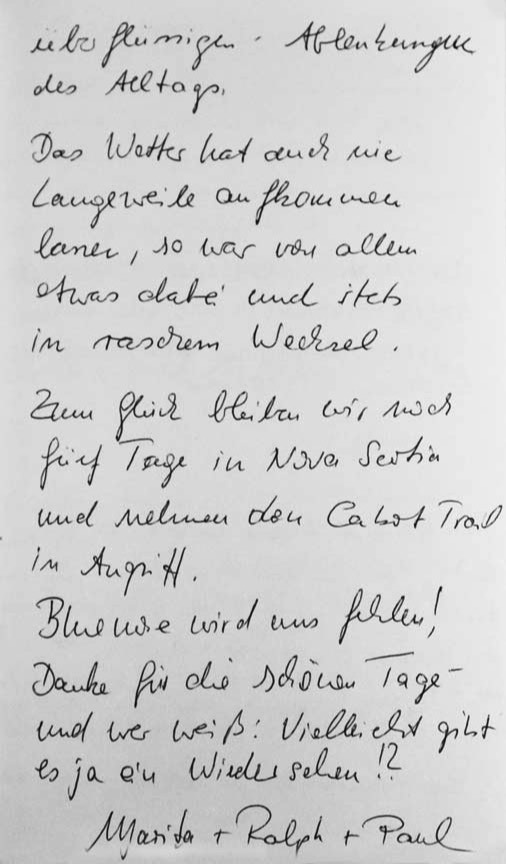 überflüssigen Ablenkungen
des Alltags.
Das Wetter hat auch nie
Langeweile aufkommen
lassen, so war von allem
etwas dabei und stets
in raschem Wechsel.
Zum Glück bleiben wir noch
fünf Tage in Nova Scotia
und nehmen den Cabot Trail
in Angriff.
Bluenose wird uns fehlen!
Danke für die schönen Tage -
und wer weiß: Vielleicht gibt
es ja ein Wiedersehen!?
Marita + Ralph + Paul